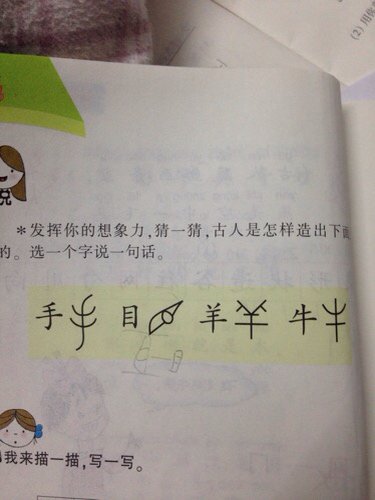 (2)用
说
*发挥你的想象力,猜一猜,古人是怎样造出下面
的。选一个字说一句话。
手 目 羊 牛
我来描一描,写一写。